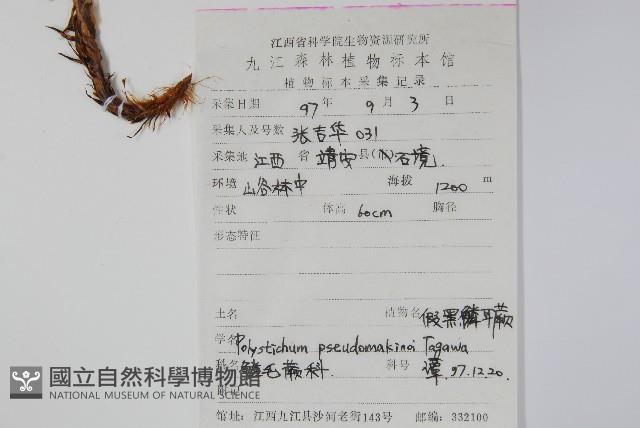 江西省科学院生物资源研究所
九江森林植物标本馆
植物标本采集记录
采集日期 97年 9月 3日
采集人及号数 张吉华 031
采集地 江西省 靖安县 石境
环境 山谷林中 海拔 1200 m
性状 体高 60cm 胸径
形态特征
土名 植物名 假黑鳞耳蕨
学名 Polystichum pseudomakinoi Tagawa
科名 鳞毛蕨科 科号 覃 97.12.20.
附记
國立自然科學博物館
NATIONAL MUSEUM OF NATURAL SCIENCE
馆址: 江西九江县沙河老街143号 邮编: 332100